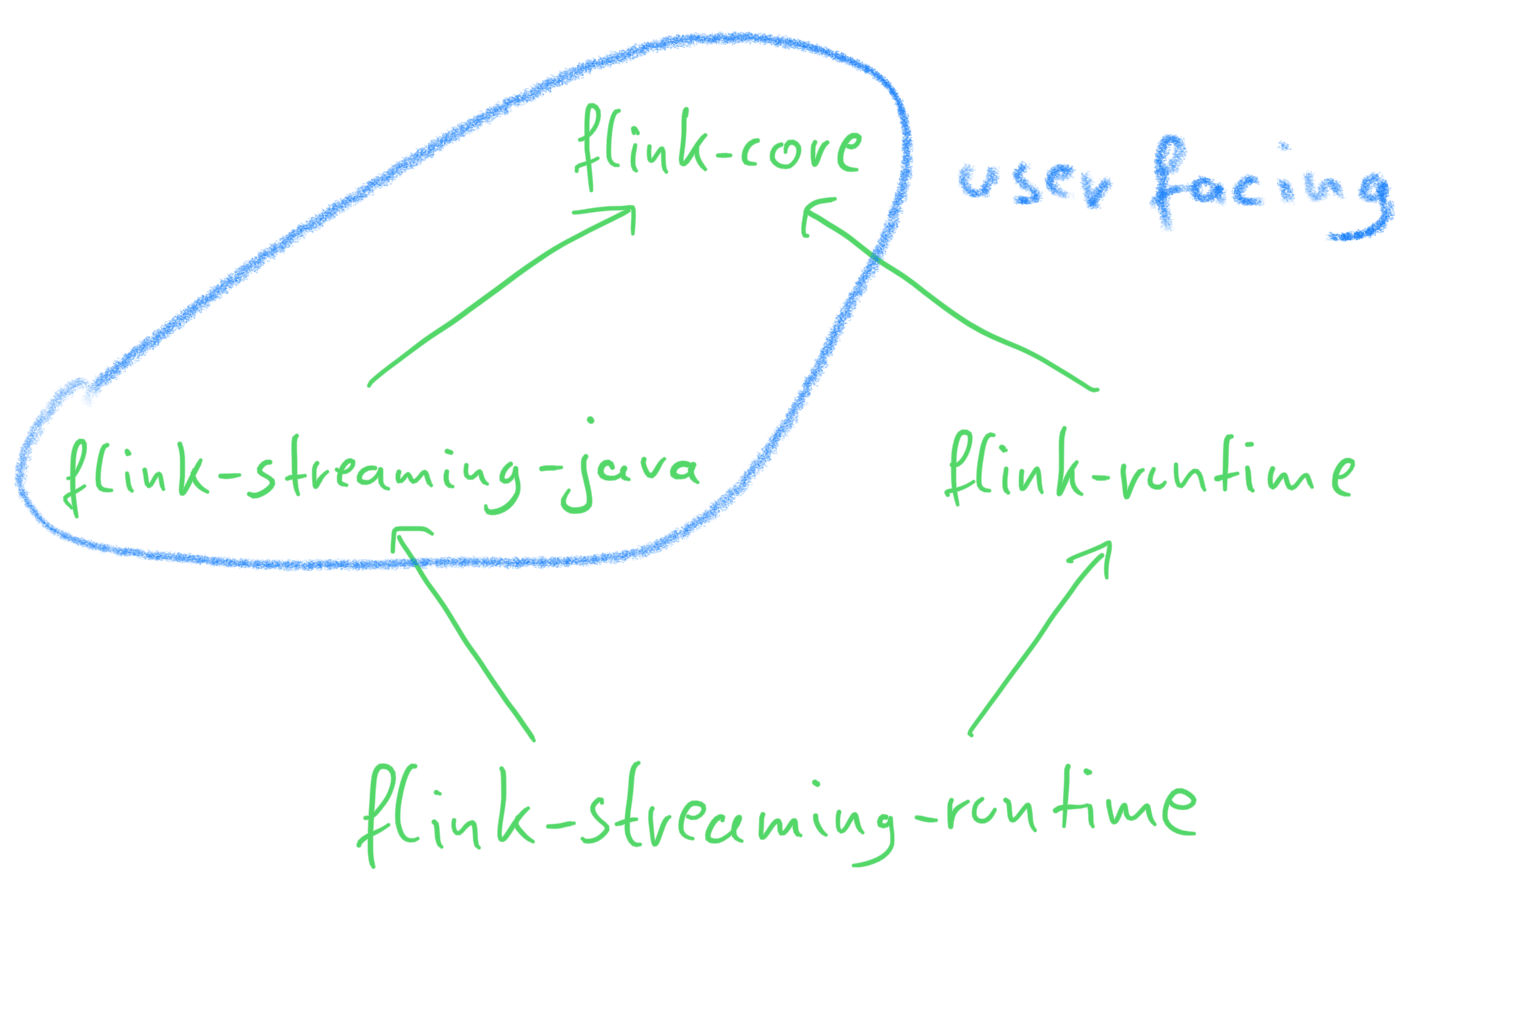 flink-core
user facing
flink-streaming-java
flink-runtime
flink-streaming-runtime